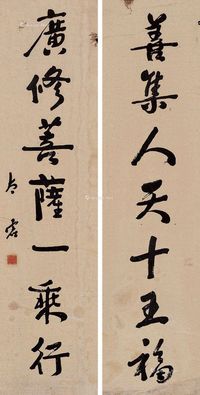 善集人天十王福
廣修菩薩一乘行
太虛